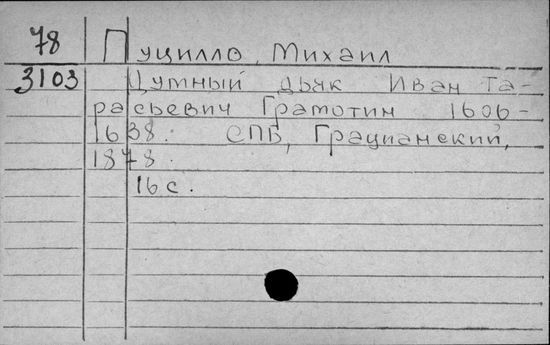 78 Пуцилло, Михаил
3103 Думный дьяк Иван Та-
расьевич Грамотин 1606-
1638. СПБ, Грацианский,
1878.
16 с.